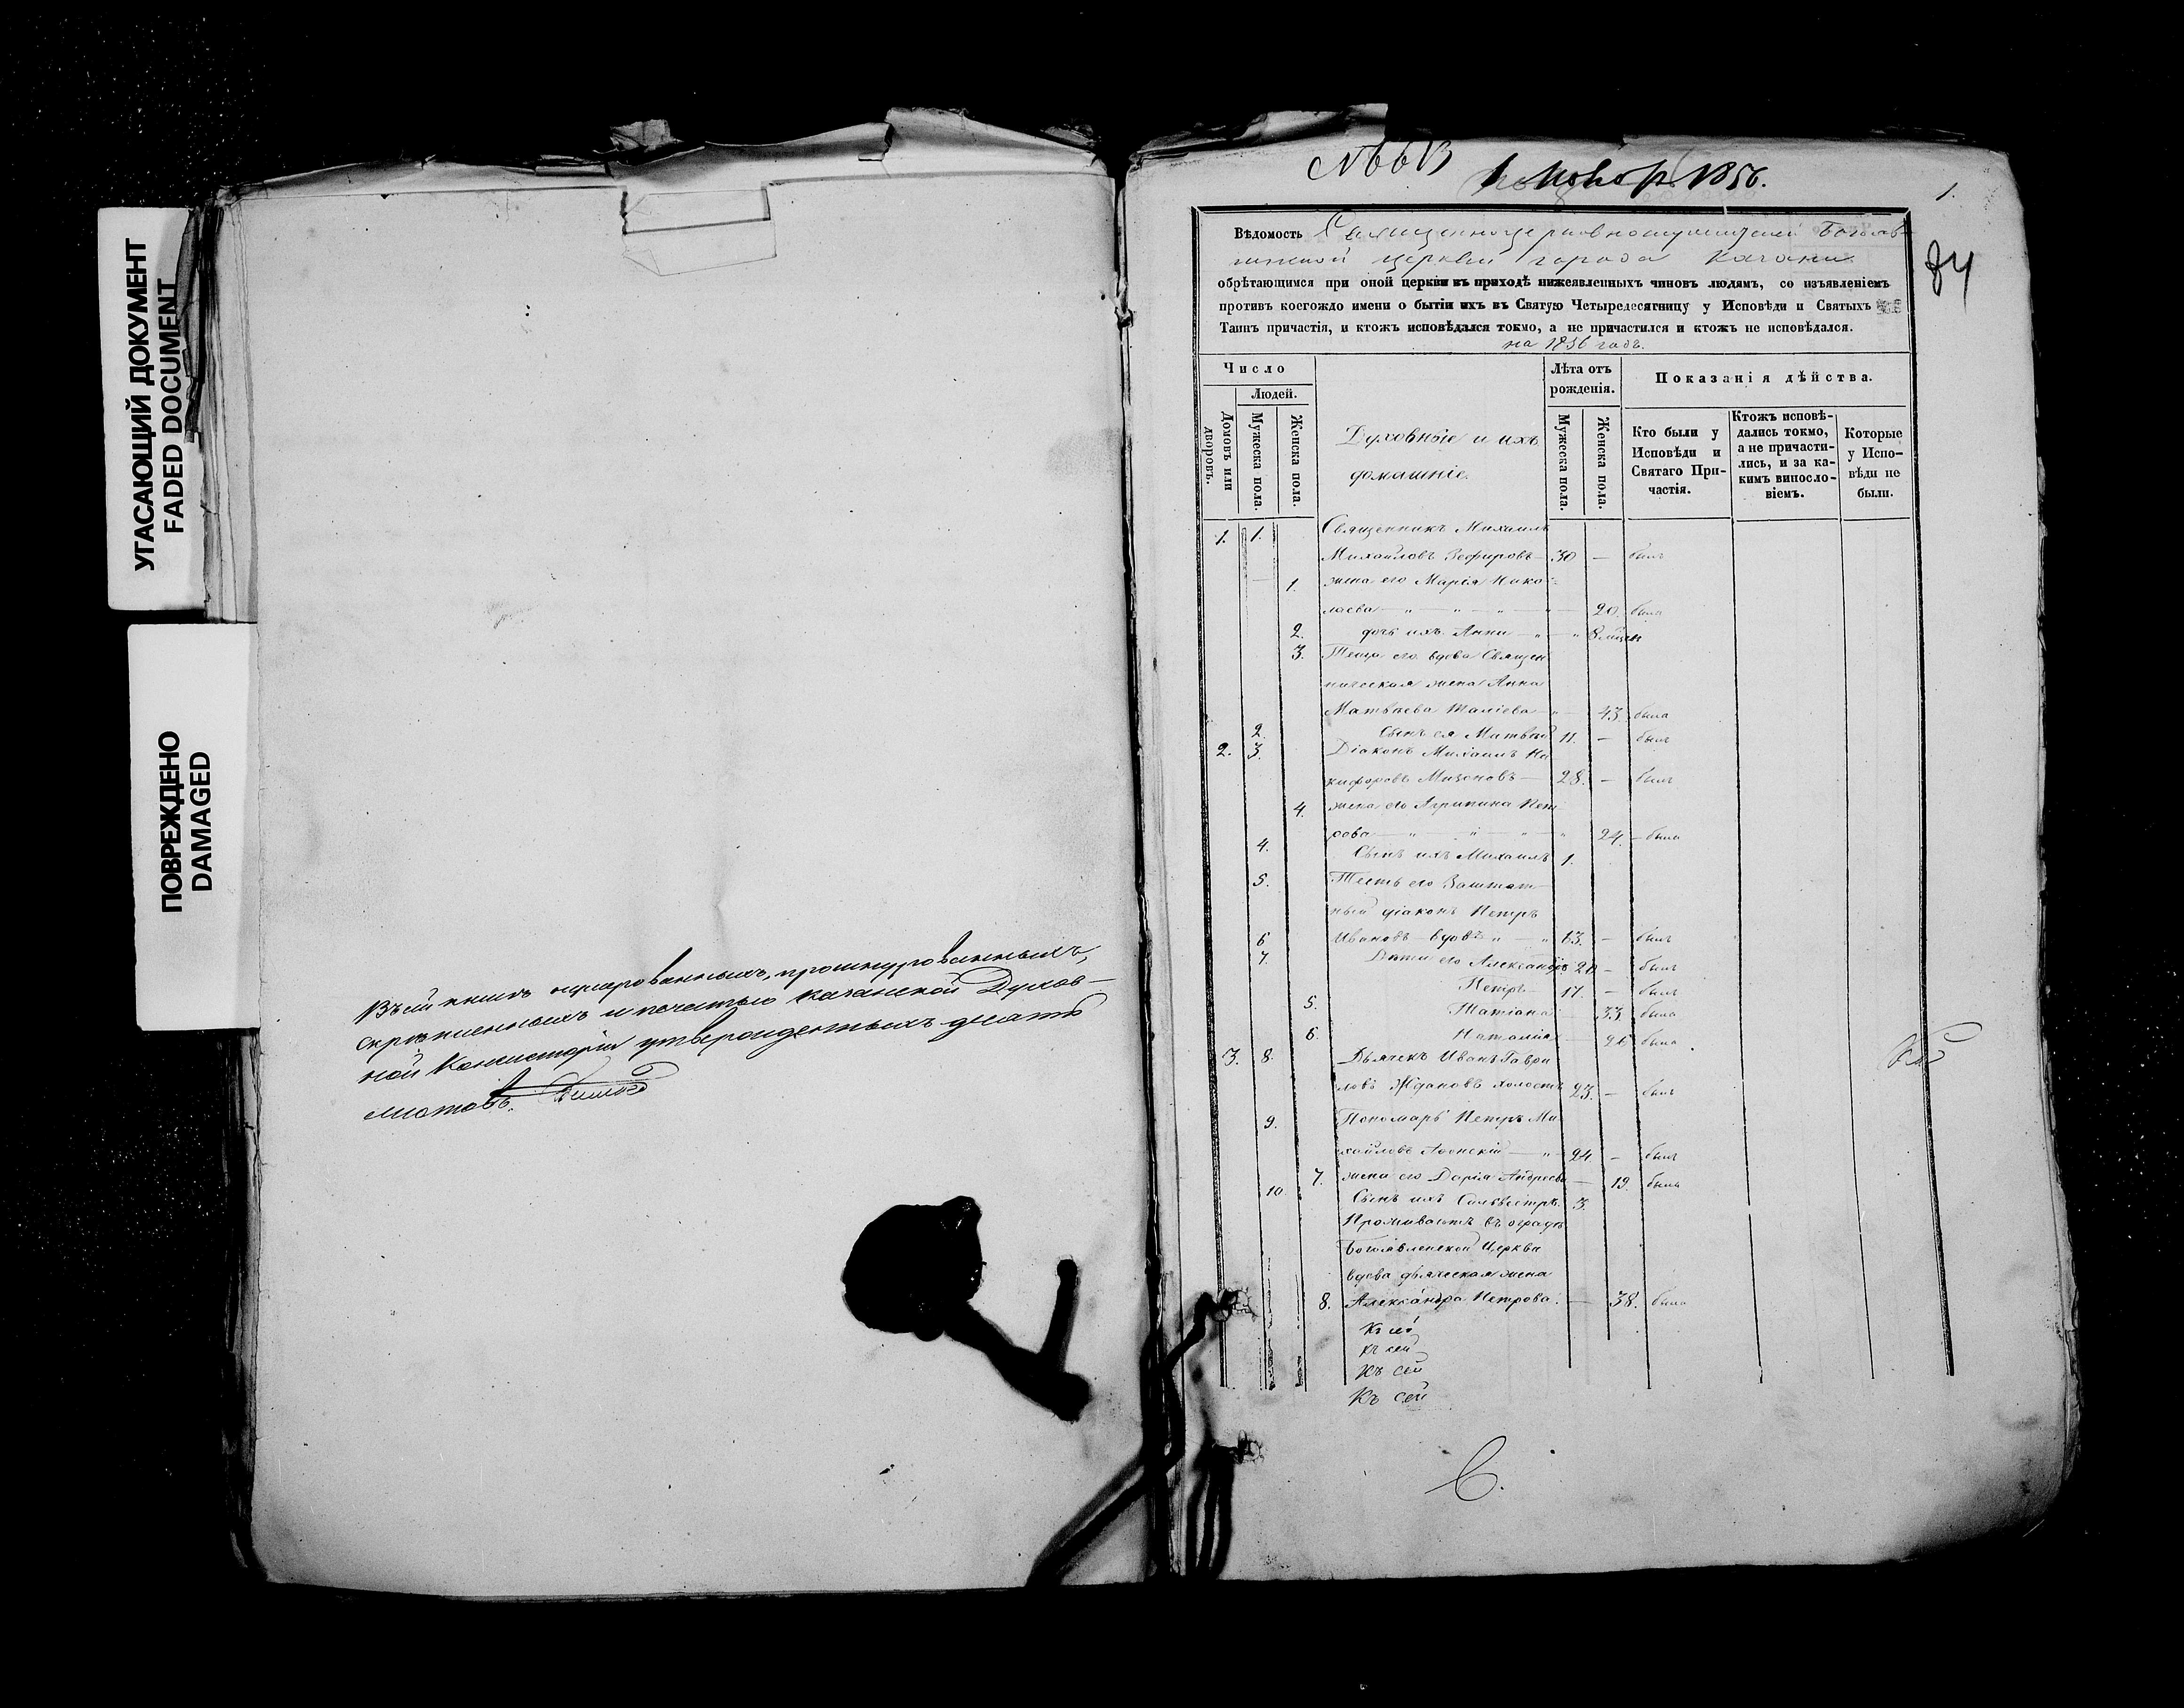 УГАСАЮЩИЙ ДОКУМЕНТ
FADED DOCUMENT
ПОВРЕЖДЕНО
DAMAGED
Въ сей книгѣ нумерованныхъ, прошнурованныхъ,
скрѣпленныхъ и печатью Казанской Духов-
ной Консисторіи утвержденныхъ десять
листовъ.
1856.
1.
84
Вѣдомость Священноцерковнослужителей Богояв-
ленской церкви города Казани
обрѣтающимся при оной церкви въ приходѣ нижеявленныхъ чиновъ людямъ, со изъявленіемъ
противъ коегождо имени о бытіи ихъ въ Святую Четыредесятницу у Исповѣди и Святыхъ
Таинъ причастія, и ктожъ исповѣдался токмо, а не причастился и ктожъ не исповѣдался.
на 1856 годъ.
Число
Людей.
Домовъ или дворовъ.
Мужеска пола.
Женска пола.
Духовные и ихъ
домашніе.
Лѣта отъ
рожденія.
Мужеска пола.
Женска пола.
Показанія дѣйства.
Кто были у
Исповѣди и
Святаго При-
частія.
Ктожъ исповѣ-
дались токмо,
а не причасти-
лись, и за ка-
кимъ винословіемъ.
Которые
у Испо-
вѣди не
были.
1. 1. Священникъ Михаилъ
Михайловъ Зефировъ 30 — былъ
1. жена его Марія Нико-
лаева 20. была
2. дочь ихъ Анна 8 мцев
3. Теща его вдова Священ
ническая жена Анна
Матвѣева 43. была
2. Сынъ ея Матвѣй 11. — былъ
2. 3. Діаконъ Михаилъ Ни
кифоровъ 28. — былъ
4. жена его Агрипина Пет
рова 24. — была
4. Сынъ ихъ Михаилъ 1.
5. Тесть его Заштат
ный діаконъ Петръ
Ивановъ вдовъ 63. — былъ
6 Дѣти его Александръ 20 — былъ
7. Петръ 17. — былъ
5. Татіана 33. была
6. Наталія 26 была
3. 8. Дьячекъ Иванъ Гаври
ловъ Ждановъ холостъ 23. — былъ
9. Пономарь Петръ Ми
хайловъ 24 — былъ
7. жена его Дарія Андреева — 19. была
10 Сынъ ихъ Сильвестръ 3.
Проживаетъ въ оградѣ
Богоявленской Церкви
вдова дьяческая жена
8. Александра Петрова. — 38. была
Къ сей
Къ сей
Къ сей
Къ сей